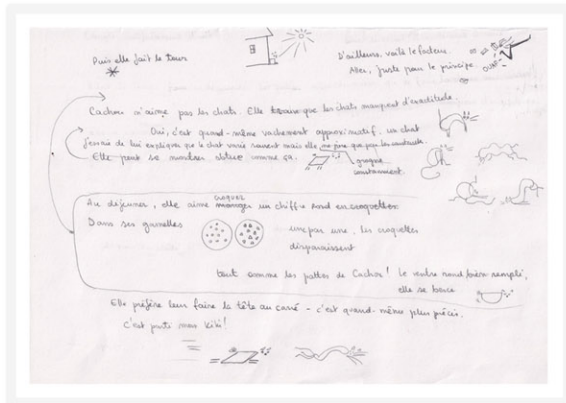 Puis elle fait le tour
D'ailleurs, voilà le facteur.
Allez, juste pour le principe.
OUAF
Cachou n'aime pas les chats. Elle trouve que les chats manquent d'exactitude.
Oui, c'est quand-même vachement approximatif, un chat
J'essaie de lui expliquer que le chat varie souvent mais elle ne jure que par les
Elle peut se montrer obtuse comme ça.
grogne
constamment
croquer
Au déjeuner, elle aime manger un chiffre rond en croquettes
Dans ses gamelles
une par une, les croquettes
disparaissent
tout comme les pattes de Cachou! Le ventre rond bien rempli,
elle se berce
Elle préfère leur faire la tête au carré - c'est quand-même plus précis.
C'est parti mon kiki!